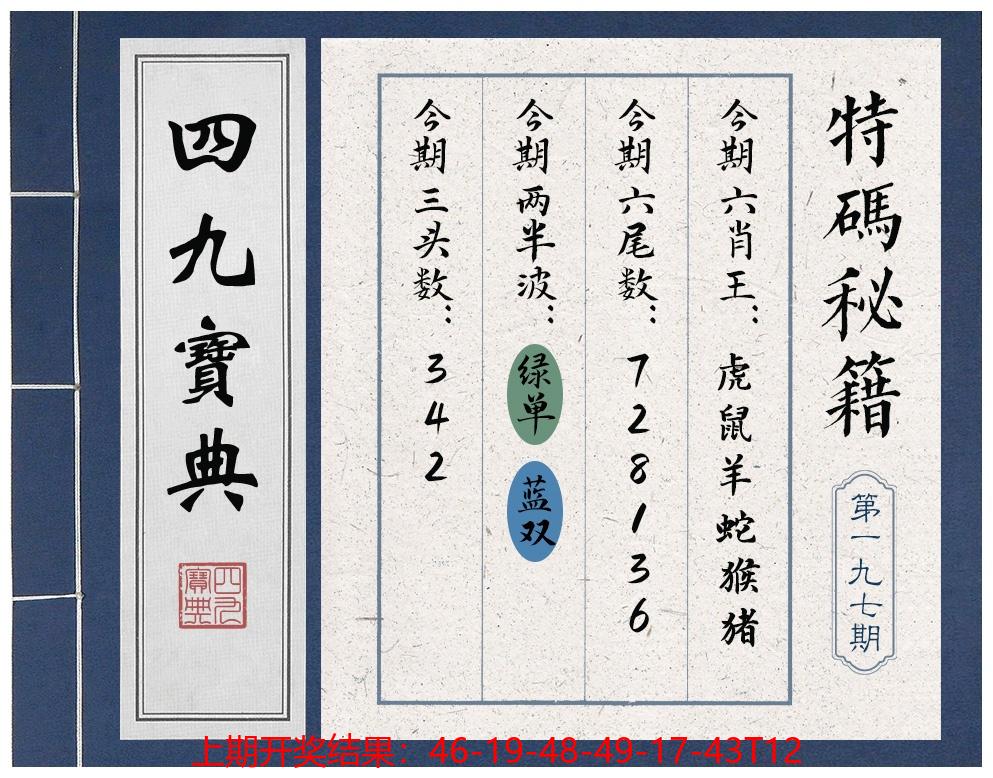 特碼秘籍
第一九七期
今期六肖王：虎鼠羊蛇猴猪
今期六尾数：728136
今期两半波：绿单 蓝双
今期三头数：342
四九寶典
四九寶典
上期开奖结果：46-19-48-49-17-43T12